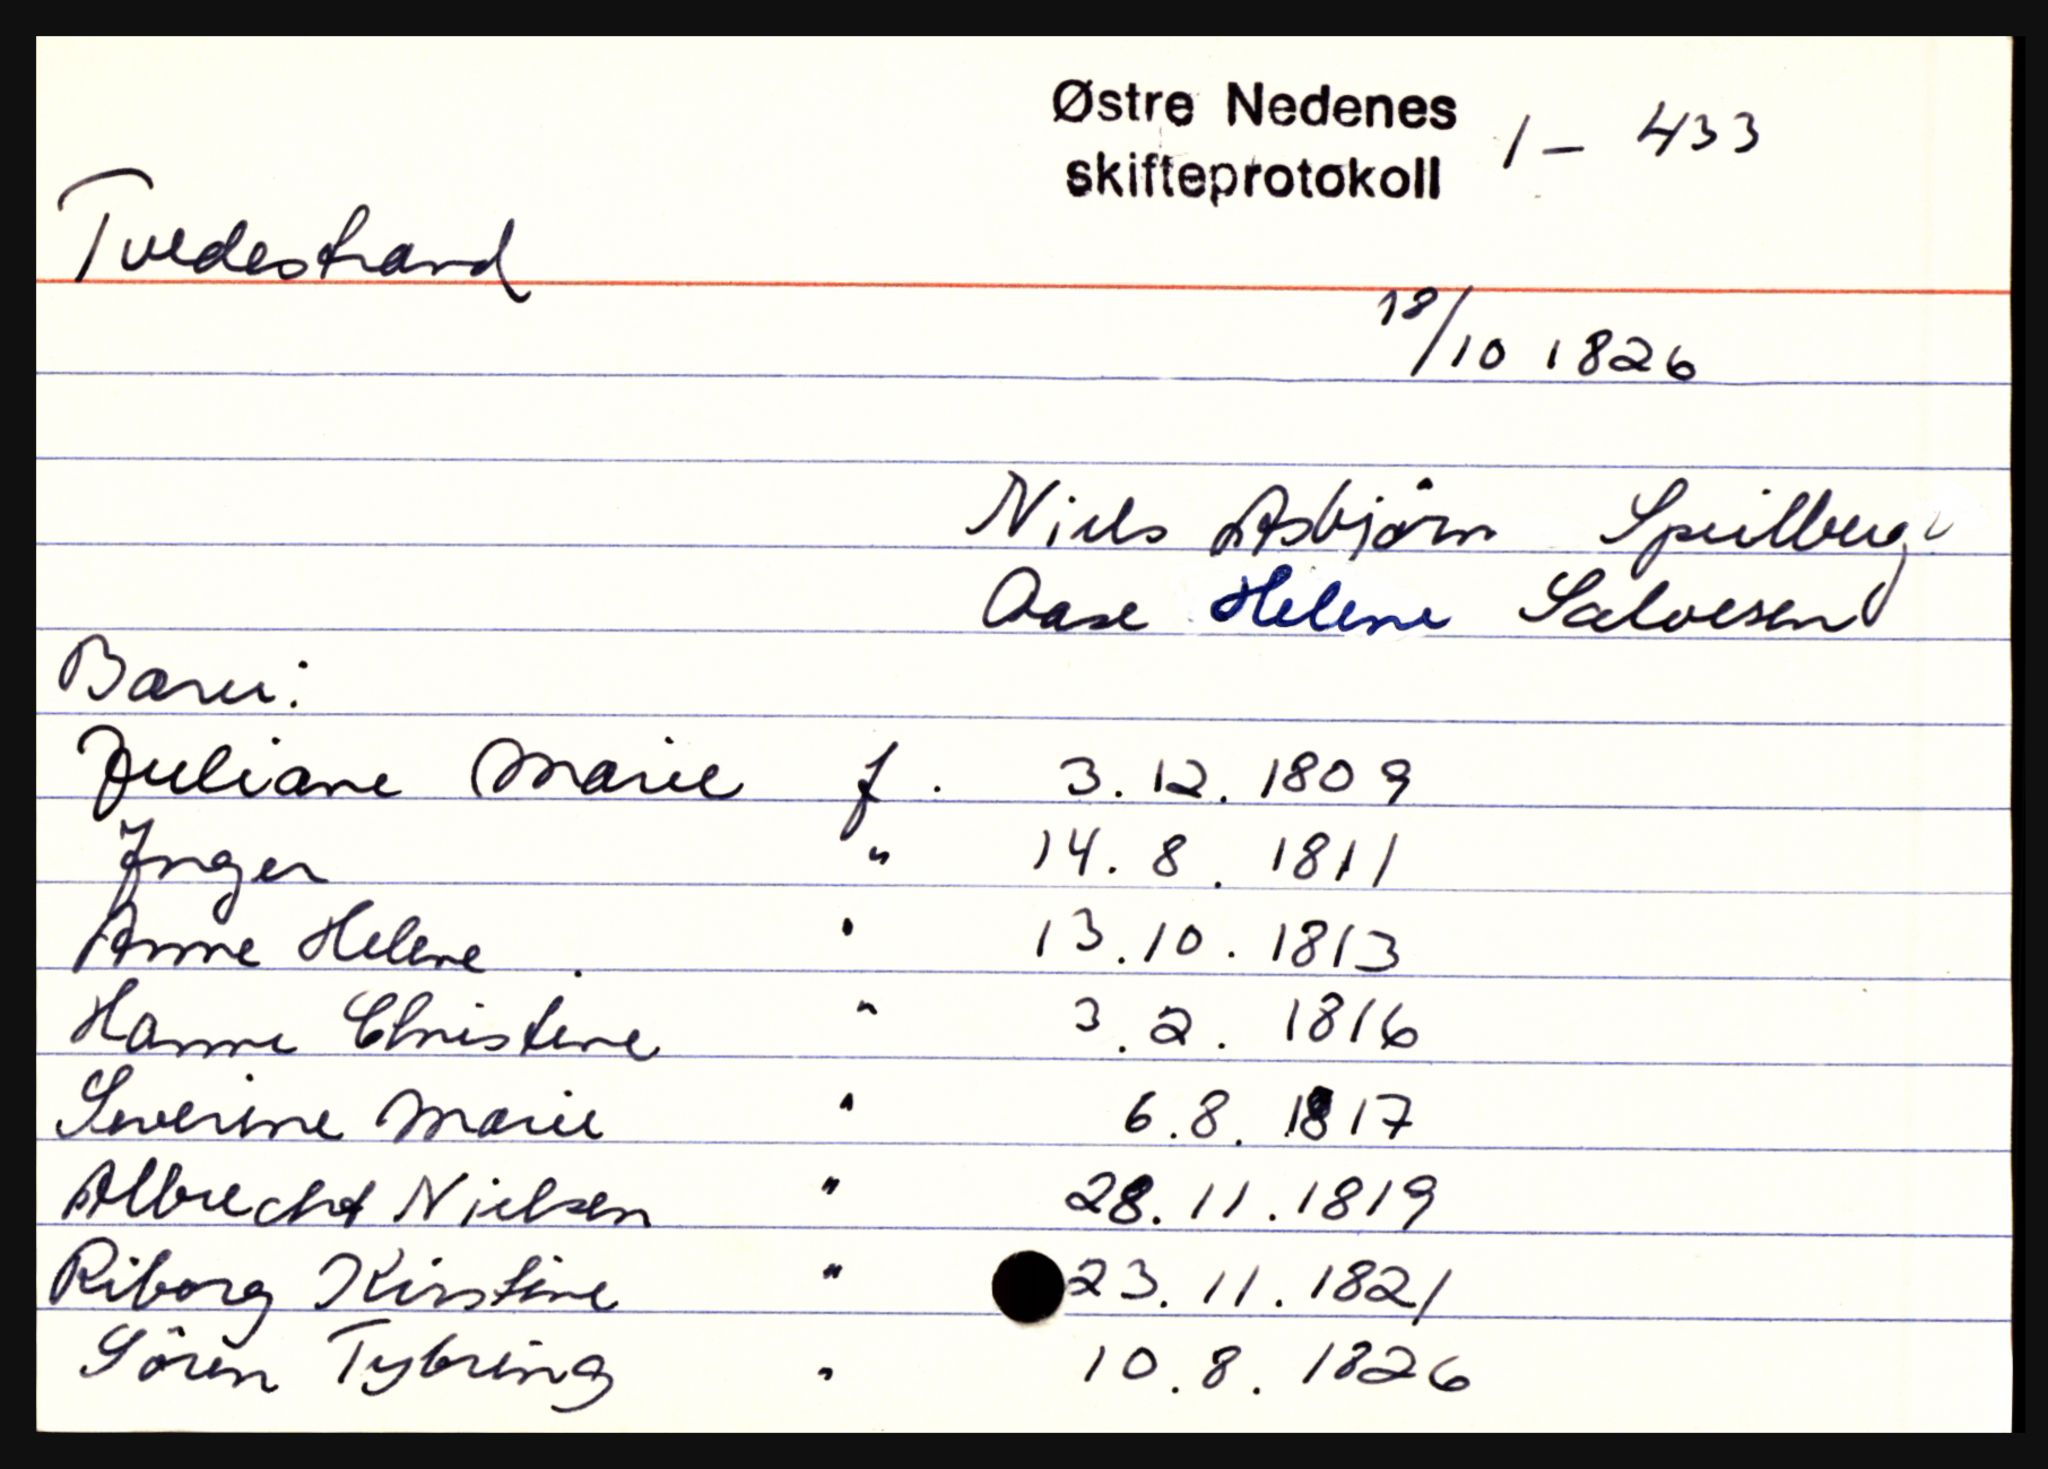 Østre Nedenes
skifteprotokoll 1 - 433
Tvedestrand
18/10 1826
Niels Asbjørn Speilberg
Aase Helene Salvesen
Barn:
Juliane Marie f. 3.12.1809
Inger " 14.8.1811
Anne Helene " 13.10.1813
Hanne Christine " 3.2.1816
Severine Marie " 6.8.1817
Albrecht Nielsen " 28.11.1819
Riborg Kirstine " 23.11.1821
Søren Tybring " 10.8.1826